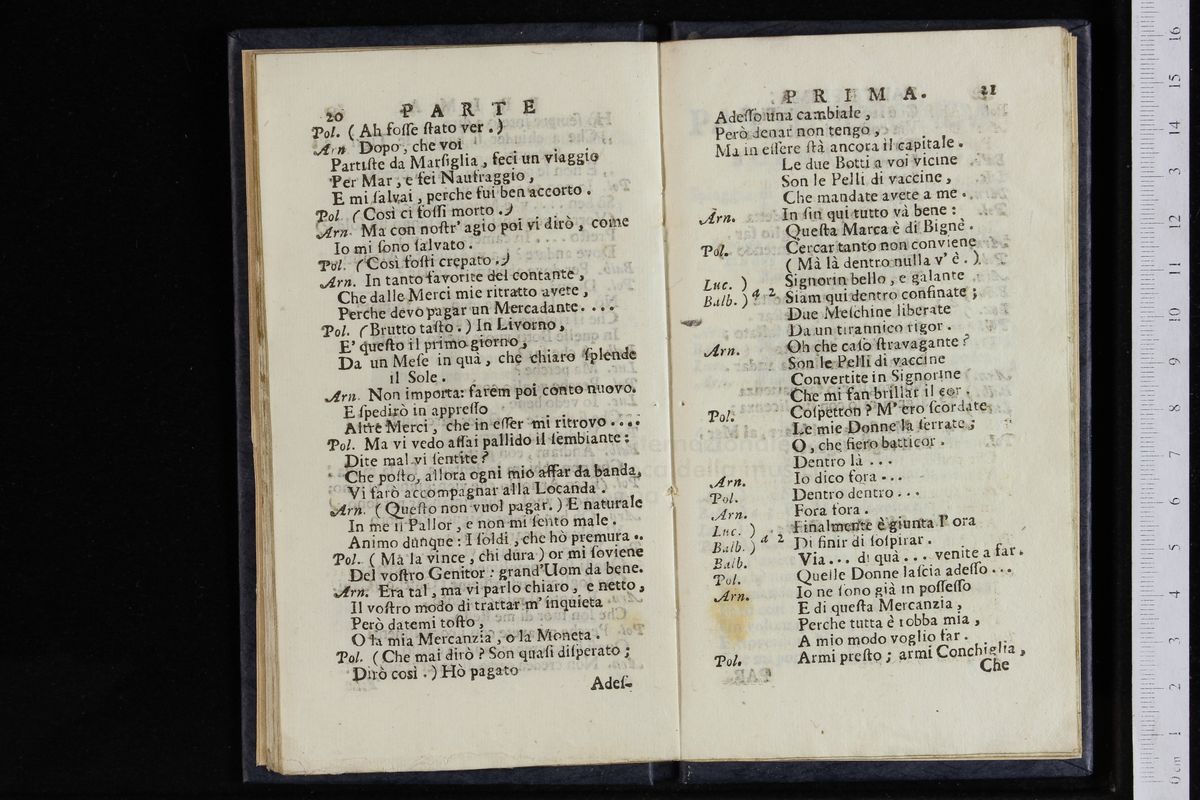 20 PARTE
Pol. ( Ah foſſe ſtato ver . )
Arn Dopo , che voi
Partiſte da Marſiglia , feci un viaggio
Per Mar , e fei Naufraggio ,
E mi ſalvai , perche fui ben accorto .
Pol. ( Così ci foſſi morto . )
Arn. Ma con noſtr' agio poi vi dirò , come
Io mi ſono ſalvato .
Pol. ( Così foſti crepato . )
Arn. In tanto favorite del contante ,
Che dalle Merci mie ritratto avete ,
Perche devo pagar un Mercadante . . . .
Pol. ( Brutto taſto . ) In Livorno ,
E' queſto il primo giorno ,
Da un Meſe in quà , che chiaro ſplende
il Sole .
Arn. Non importa: farèm poi conto nuovo.
E ſpedirò in appreſſo
Altre Merci , che in eſſer mi ritrovo . . . .
Pol. Ma vi vedo aſſai pallido il ſembiante :
Dite mal vi ſentite ?
Che poſto, allora ogni mio affar da banda,
Vi farò accompagnar alla Locanda .
Arn. ( Queſto non vuol pagar. ) E naturale
In me il Pallor , e non mi ſento male .
Animo dunque : I ſoldi , che hò premura ..
Pol. ( Mà la vince , chi dura ) or mi ſoviene
Del voſtro Genitor : grand'Uom da bene.
Arn. Era tal , ma vi parlo chiaro , e netto ,
Il voſtro modo di trattar m' inquieta
Però datemi toſto ,
O la mia Mercanzia , o la Moneta .
Pol. ( Che mai dirò ? Son quaſi diſperato ;
Dirò così . ) Hò pagato
Adeſ-
PRIMA. 21
Adeſſo una cambiale ,
Però denar non tengo ,
Ma in eſſere ſtà ancora il capitale .
Le due Botti a voi vicine
Son le Pelli di vaccine ,
Che mandate avete a me .
Arn. In ſin qui tutto và bene :
Queſta Marca è di Bignè .
Pol. Cercar tanto non conviene
( Mà là dentro nulla v' è . )
Luc. ) Signorin bello , e galante
Balb. ) a 2 Siam qui dentro confinate ;
Due Meſchine liberate
Da un tirannico rigor .
Arn. Oh che caſo ſtravagante ?
Son le Pelli di vaccine
Convertite in Signorine
Che mi fan brillar il cor .
Pol. Coſpetton ? M' ero ſcordate
Le mie Donne la ſerrate ;
O , che fiero batticor .
Dentro là . . .
Arn. Io dico fora . . .
Pol. Dentro dentro . . .
Arn. Fora fora .
Luc. ) Finalmente è giunta l' ora
Balb. ) a 2 Di finir di ſoſpirar .
Balb. Via . . . di quà . . . venite a far .
Pol. Quelle Donne laſcia adeſſo . . .
Arn. Io ne ſono già in poſſeſſo
E di queſta Mercanzia ,
Perche tutta è robba mia ,
A mio modo voglio far .
Pol. Armi preſto ; armi Conchiglia ,
Che
0 cm 1 2 3 4 5 6 7 8 9 10 11 12 13 14 15 16